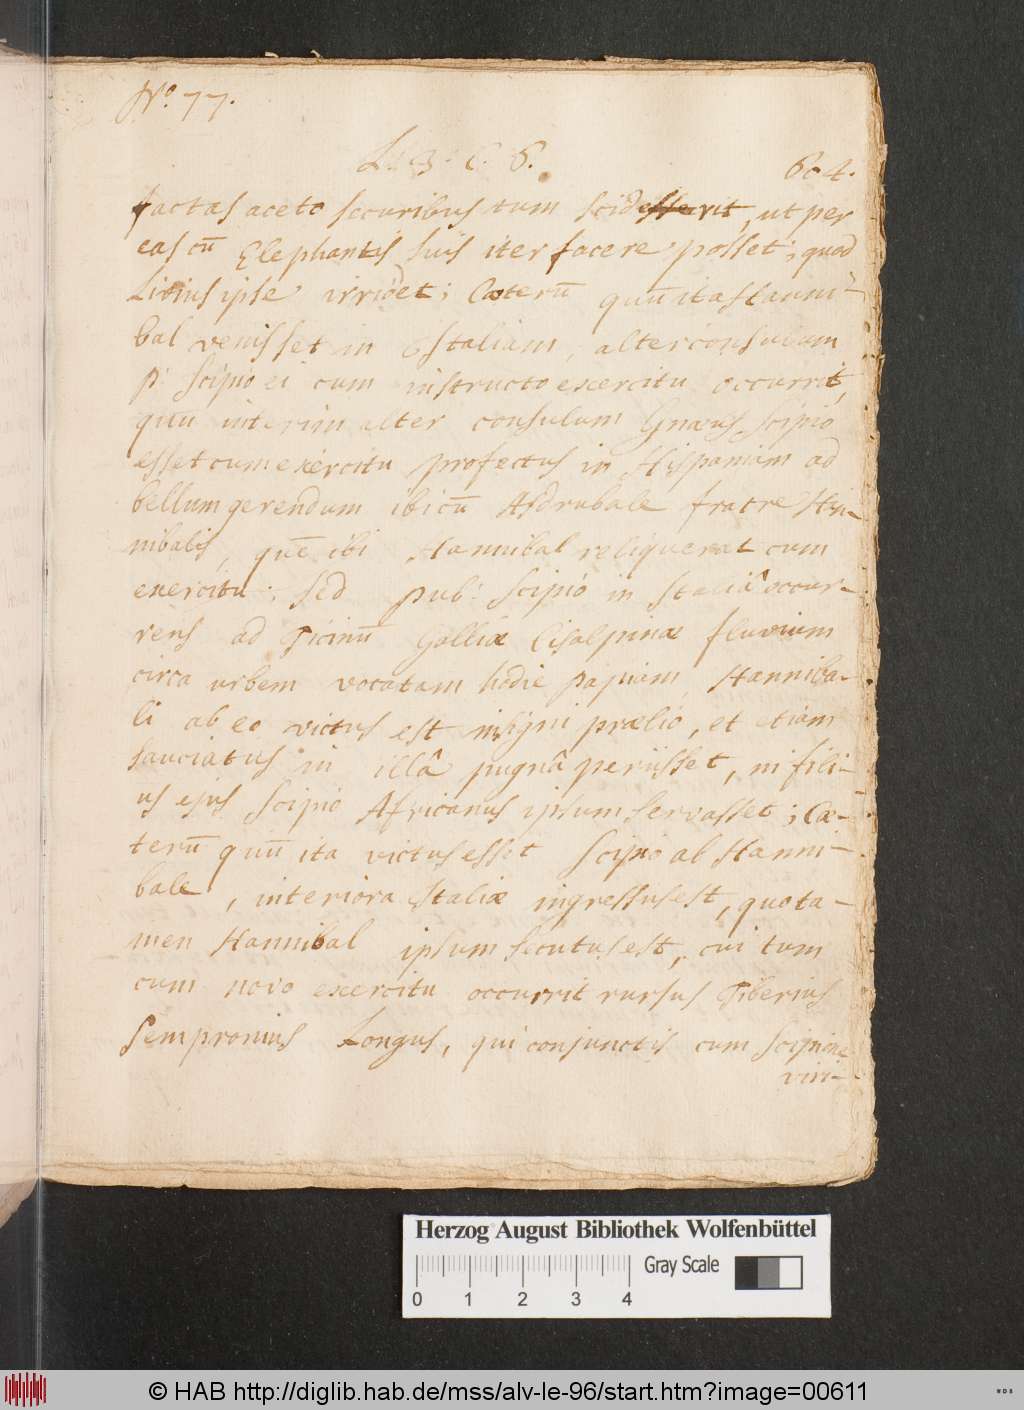 No. 77.
L. 3. C. 6.
604.
factas aceto securibus tum scidesserit, ut per
eas cū Elephantis suis iter facere posset; quod
Livius ipse irridet; Cæterū quū ita Hanni-
bal venisset in Italiam, alter consulum
P. Scipio ei cum instructo exercitu occurrit,
quū interim alter consulum Gnæus Scipio
esset cum exercitu profectus in Hispaniam ad
bellum gerendum ibi cū Asdrubale fratre Han-
nibalis, quē ibi Hannibal reliquerat cum
exercitu; sed Pub: Scipio in Italiâ occur-
rens ad Ticinū Galliæ Cisalpinæ fluvium
circa urbem vocatam hodie Papiam, Hanniba-
li ab eo victus est insigni prælio, et etiam
sauciatus in illâ pugnâ periisset, ni fili-
us ejus Scipio Africanus ipsum servasset; Cæ-
terū quū ita victus esset Scipio ab Hanni-
bale, interiora Italiæ ingressus est, quo ta-
men Hannibal ipsum secutus est, cui tum
cum novo exercitu occurrit rursus Tiberius
Sempronius Longus, qui conjunctis cum Scipione
viri-
Herzog August Bibliothek Wolfenbüttel
Gray Scale
0 1 2 3 4
© HAB http://diglib.hab.de/mss/alv-le-96/start.htm?image=00611